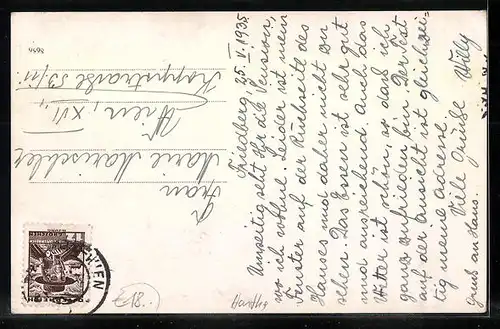 Friedberg 25. V. 1935
Umseitig seht Ihr die Pension,
wo ich wohne. Leider ist mein
Fenster auf der Rückseite des
Hauses und daher nicht zu
sehen. Das Essen ist sehr gut
und ausreichend. Auch das
Wetter ist schön, so daß ich
ganz zufrieden bin. Der Text
auf der Ansicht ist gleichzei-
tig meine Adresse.
Viele Grüße Willy
Gruß an Hans.
Frau
Marie
Wien, XVI
Koppstraße 53/11
GROSCHEN
WIEN